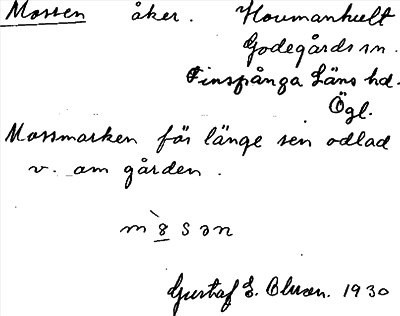 Mossen åker. Houmanhult
Godegårds sn.
Finspånga Läns hd.
Ögl.
Mossmarken för länge sen odlad
v. om gården.
Gustaf E. 1930